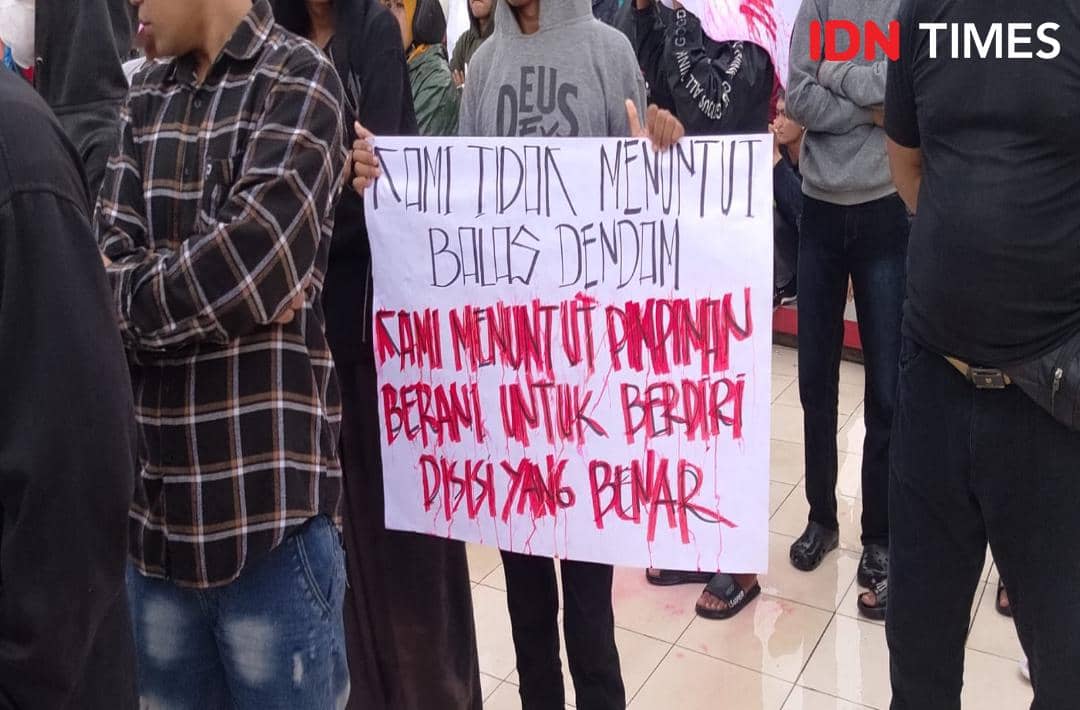 IDN TIMES
DEUS
KAMI TIDAK MENUNTUT
BALAS DENDAM
KAMI MENUNTUT PIMPINAN
BERANI UNTUK BERDIRI
DISISI YANG BENAR